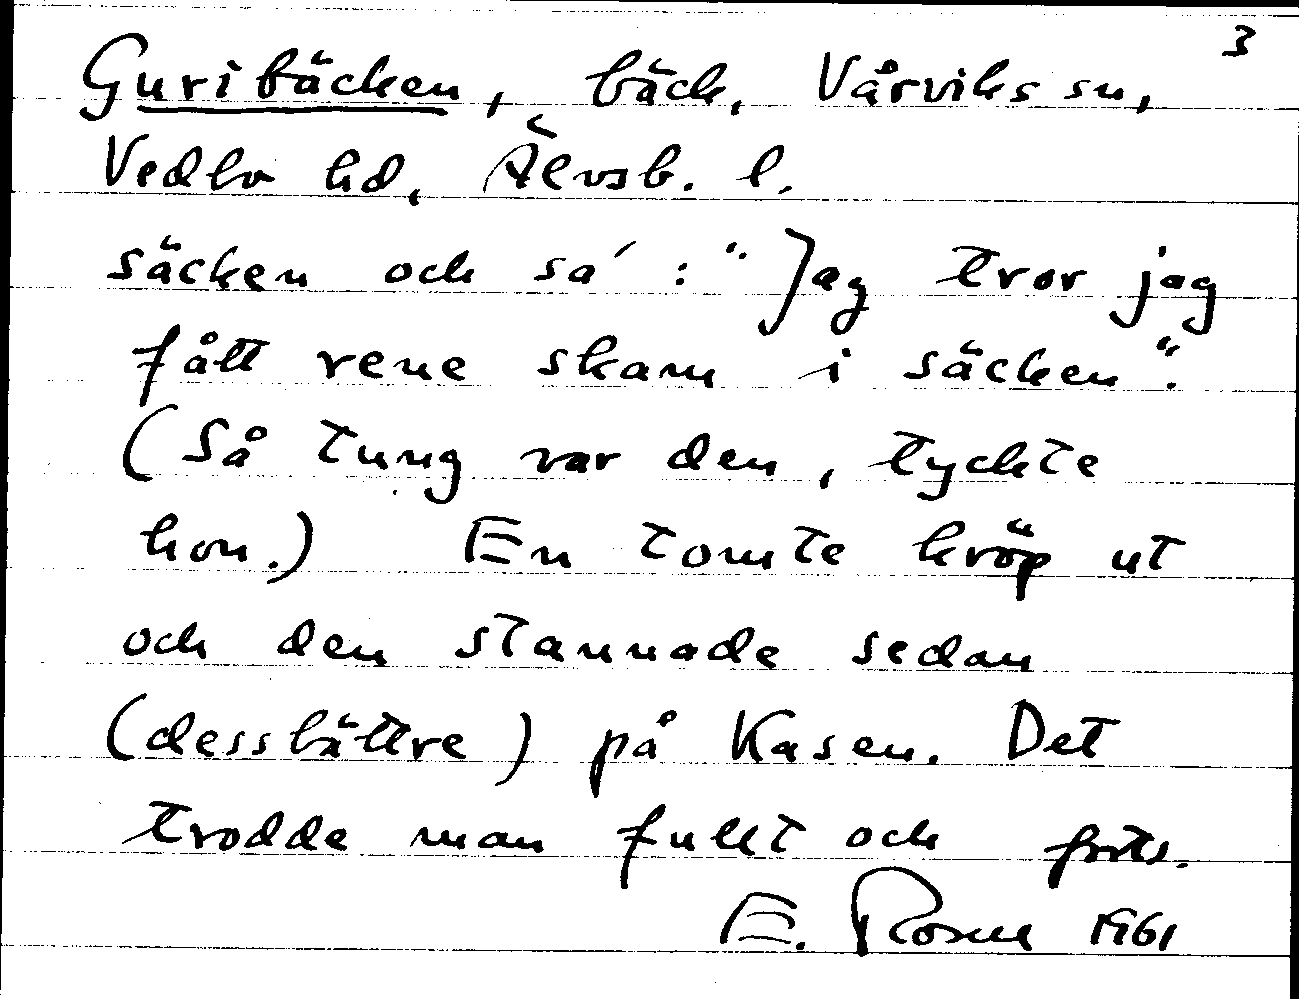 3
Guribäcken, bäck, Vårviks sn,
Vedbo hd, Älvsb. l.
säcken och sa': "Jag tror jag
fått rene skam i säcken".
(Så tung var den, tyckte
hon.) En tomte kröp ut
och den stannade sedan
(dessbättre) på Kasen. Det
trodde man fullt och forts.
E. Rosell 1961